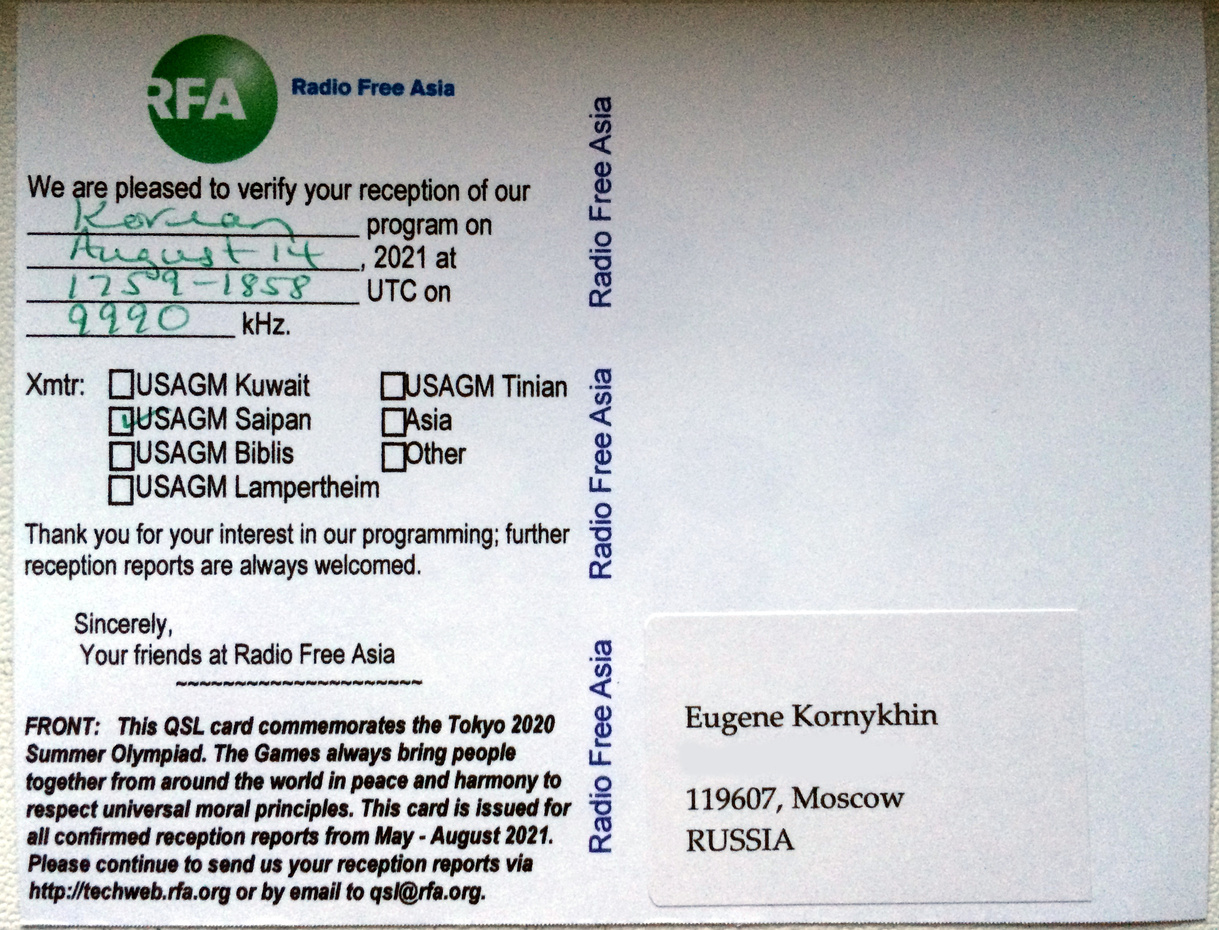 RFA
Radio Free Asia
We are pleased to verify your reception of our
Korean program on
August 14, 2021 at
1759-1858 UTC on
9990 kHz.
Xmtr: USAGM Kuwait
USAGM Tinian
USAGM Saipan
Asia
USAGM Biblis
Other
USAGM Lampertheim
Thank you for your interest in our programming; further
reception reports are always welcomed.
Sincerely,
Your friends at Radio Free Asia
~~~~~~~~~~~~~~~~~~~~~
FRONT: This QSL card commemorates the Tokyo 2020
Summer Olympiad. The Games always bring people
together from around the world in peace and harmony to
respect universal moral principles. This card is issued for
all confirmed reception reports from May - August 2021.
Please continue to send us your reception reports via
http://techweb.rfa.org or by email to qsl@rfa.org.
Radio Free Asia
Radio Free Asia
Radio Free Asia
Eugene Kornykhin
119607, Moscow
RUSSIA